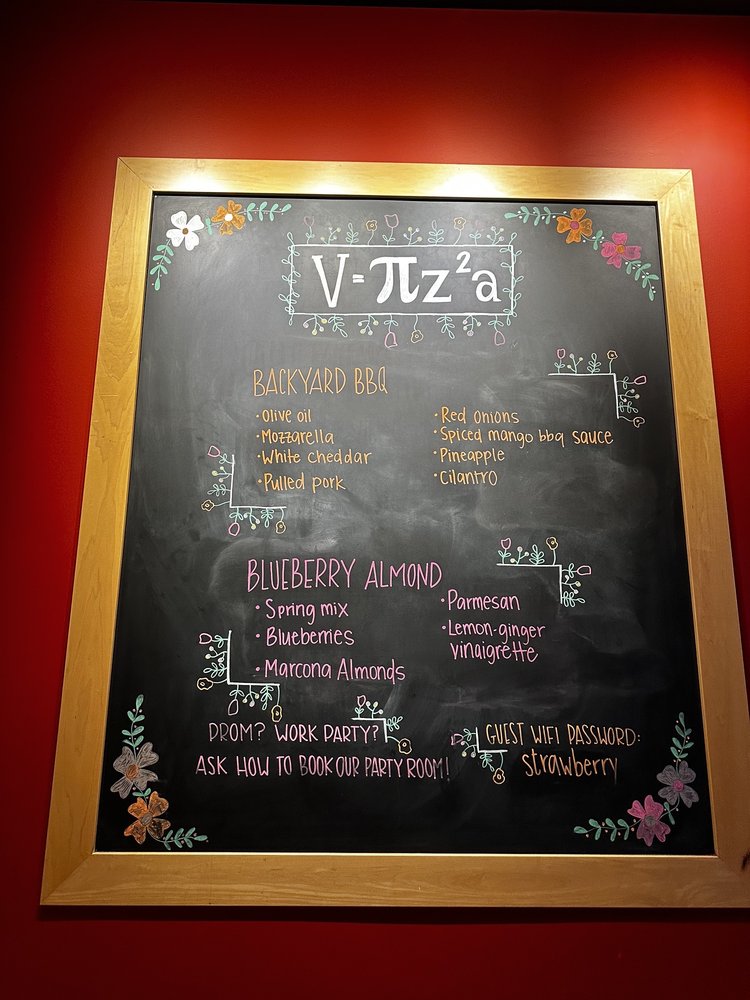 V=πz²a
BACKYARD BBQ
·Olive oil
·Mozzarella
·White cheddar
·Pulled pork
·Red onions
·Spiced mango bbq sauce
·Pineapple
·Cilantro
BLUEBERRY ALMOND
·Spring mix
·Blueberries
·Marcona Almonds
·Parmesan
·Lemon-ginger
vinaigrette
PROM? WORK PARTY?
ASK HOW TO BOOK OUR PARTY ROOM!
GUEST WIFI PASSWORD:
strawberry